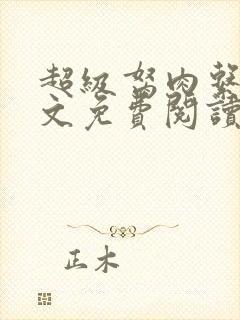 超級驽肉
文免費閱讀
正木